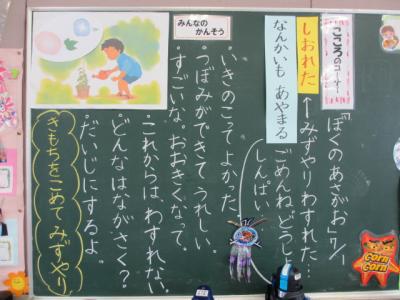 こころのコーナー
「ぼくのあさがお」7/1
しおれた
↑みずやりわすれた…
なんかいも あやまる
ごめんね、どうしよ
しんぱい
みんなの
かんそう
・いきのこってよかった。
・つぼみができてうれしい。
・すごいな。おおきくなって。
・これからは、わすれない。
・どんなはながさく？
・だいじにするよ。
きもちをこめてみずやり
Corn
Corn